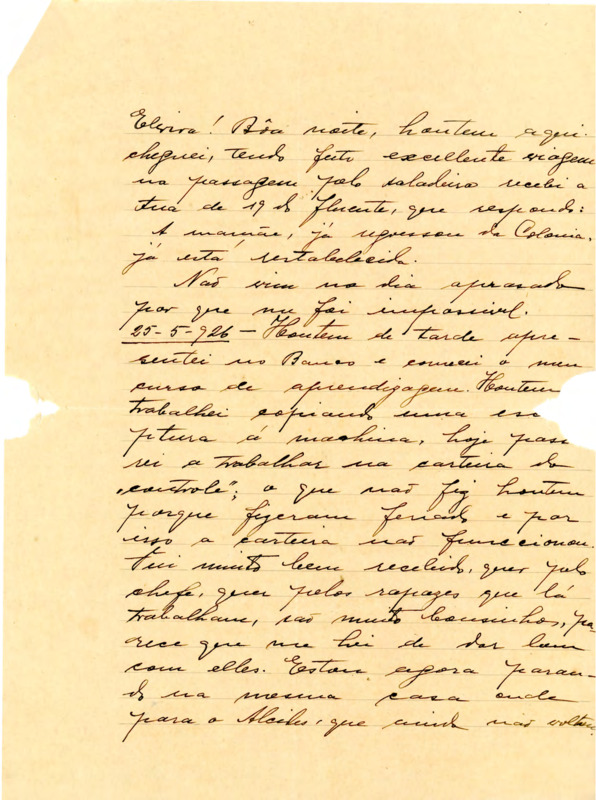 Elvira! Bôa noite, hontem aqui
cheguei, tendo feito excellente viagem
na passagem pelo saladeiro recebi a
tua de 19 do fluente, que respondo:
A mamãe, já regressou da Colonia,
já está restabelecida.
Não vim no dia aprasado
por que me foi impossivel.
25-5-926 - Hontem de tarde apre-
sentei no Banco e comecei o meu
curso de aprendizagem. Hontem
trabalhei copiando uma esc
ptura á machina, hoje pass
ei a trabalhar na carteira do
"controle"; o que não fiz hontem
porque fizeram feriado e por
isso a carteira não funccionou.
Fui muito bem recebido, quer pelo
chefe, quer pelos rapazes que lá
trabalham, são muito bonsinhos, pa-
rece que me hei de dar bem
com elles. Estou agora paran-
do na mesma casa onde
para o que ainda não voltou